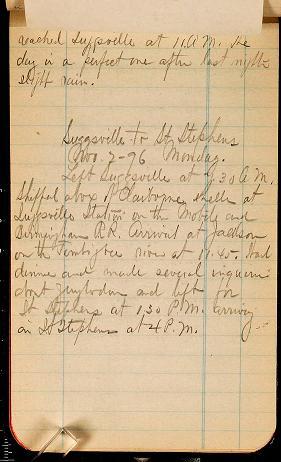 reached Suggsville at 11 A.M. The
day is a perfect one after last night's
slight rain.
Suggsville to St Stephens
Nov. 2-96 Monday.
Left Suggsville at 9.30 A.M.
Shipped a box of Claiborne shells at
Suggsville Station on the Mobile and
Birmingham R.R. Arrived at Jackson
on the Tombigbee river at 11.45. Had
dinner and made several inquiries
about Zeuglodon and left for
St Stephens at 1.30 P.M. arriving
in St Stephens at 4 P.M.